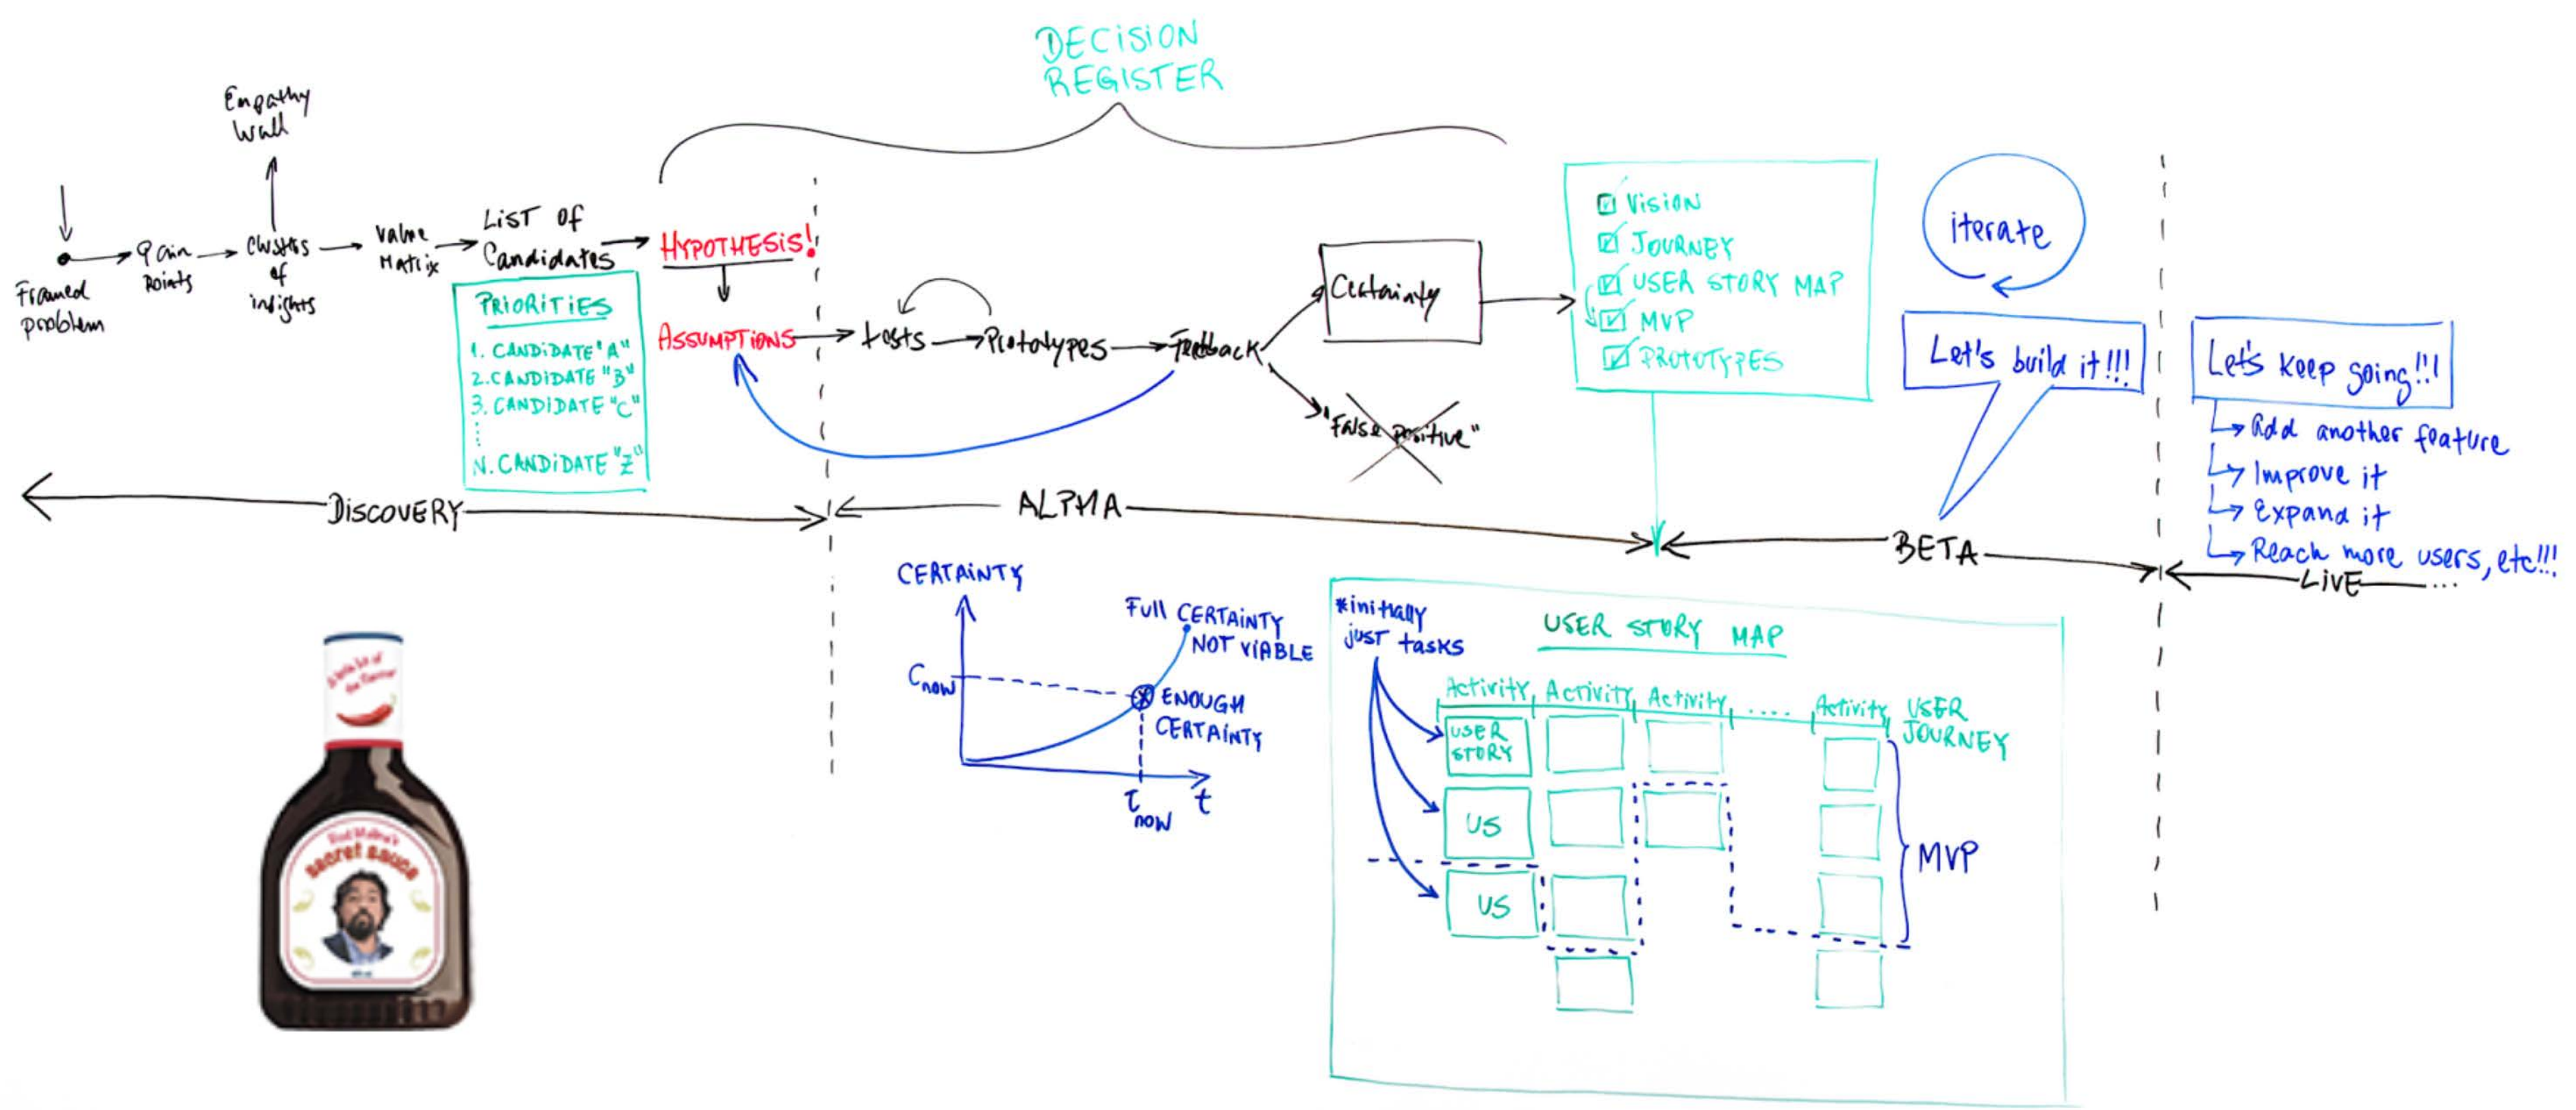 DECISION
REGISTER
Empathy
Wall
Framed
problem
Pain
Points
Clusters
of
insights
Value
Matrix
LIST OF
Candidates
PRIORITIES
1. CANDIDATE "A"
2. CANDIDATE "B"
3. CANDIDATE "C"
N. CANDIDATE "Z"
HYPOTHESIS!
ASSUMPTIONS
tests
Prototypes
Feedback
Certainty
"False Positive"
VISION
JOURNEY
USER STORY MAP
MVP
PROTOTYPES
iterate
Let's build it!!!
Let's keep going!!!
Add another feature
Improve it
Expand it
Reach more users, etc!!!
DISCOVERY
ALPHA
BETA
LIVE ...
CERTAINTY
Full CERTAINTY
NOT VIABLE
Cnow
ENOUGH
CERTAINTY
now
t
*initially
just tasks
USER STORY MAP
Activity Activity Activity .... Activity
USER
JOURNEY
USER
STORY
US
US
MVP
secret sauce